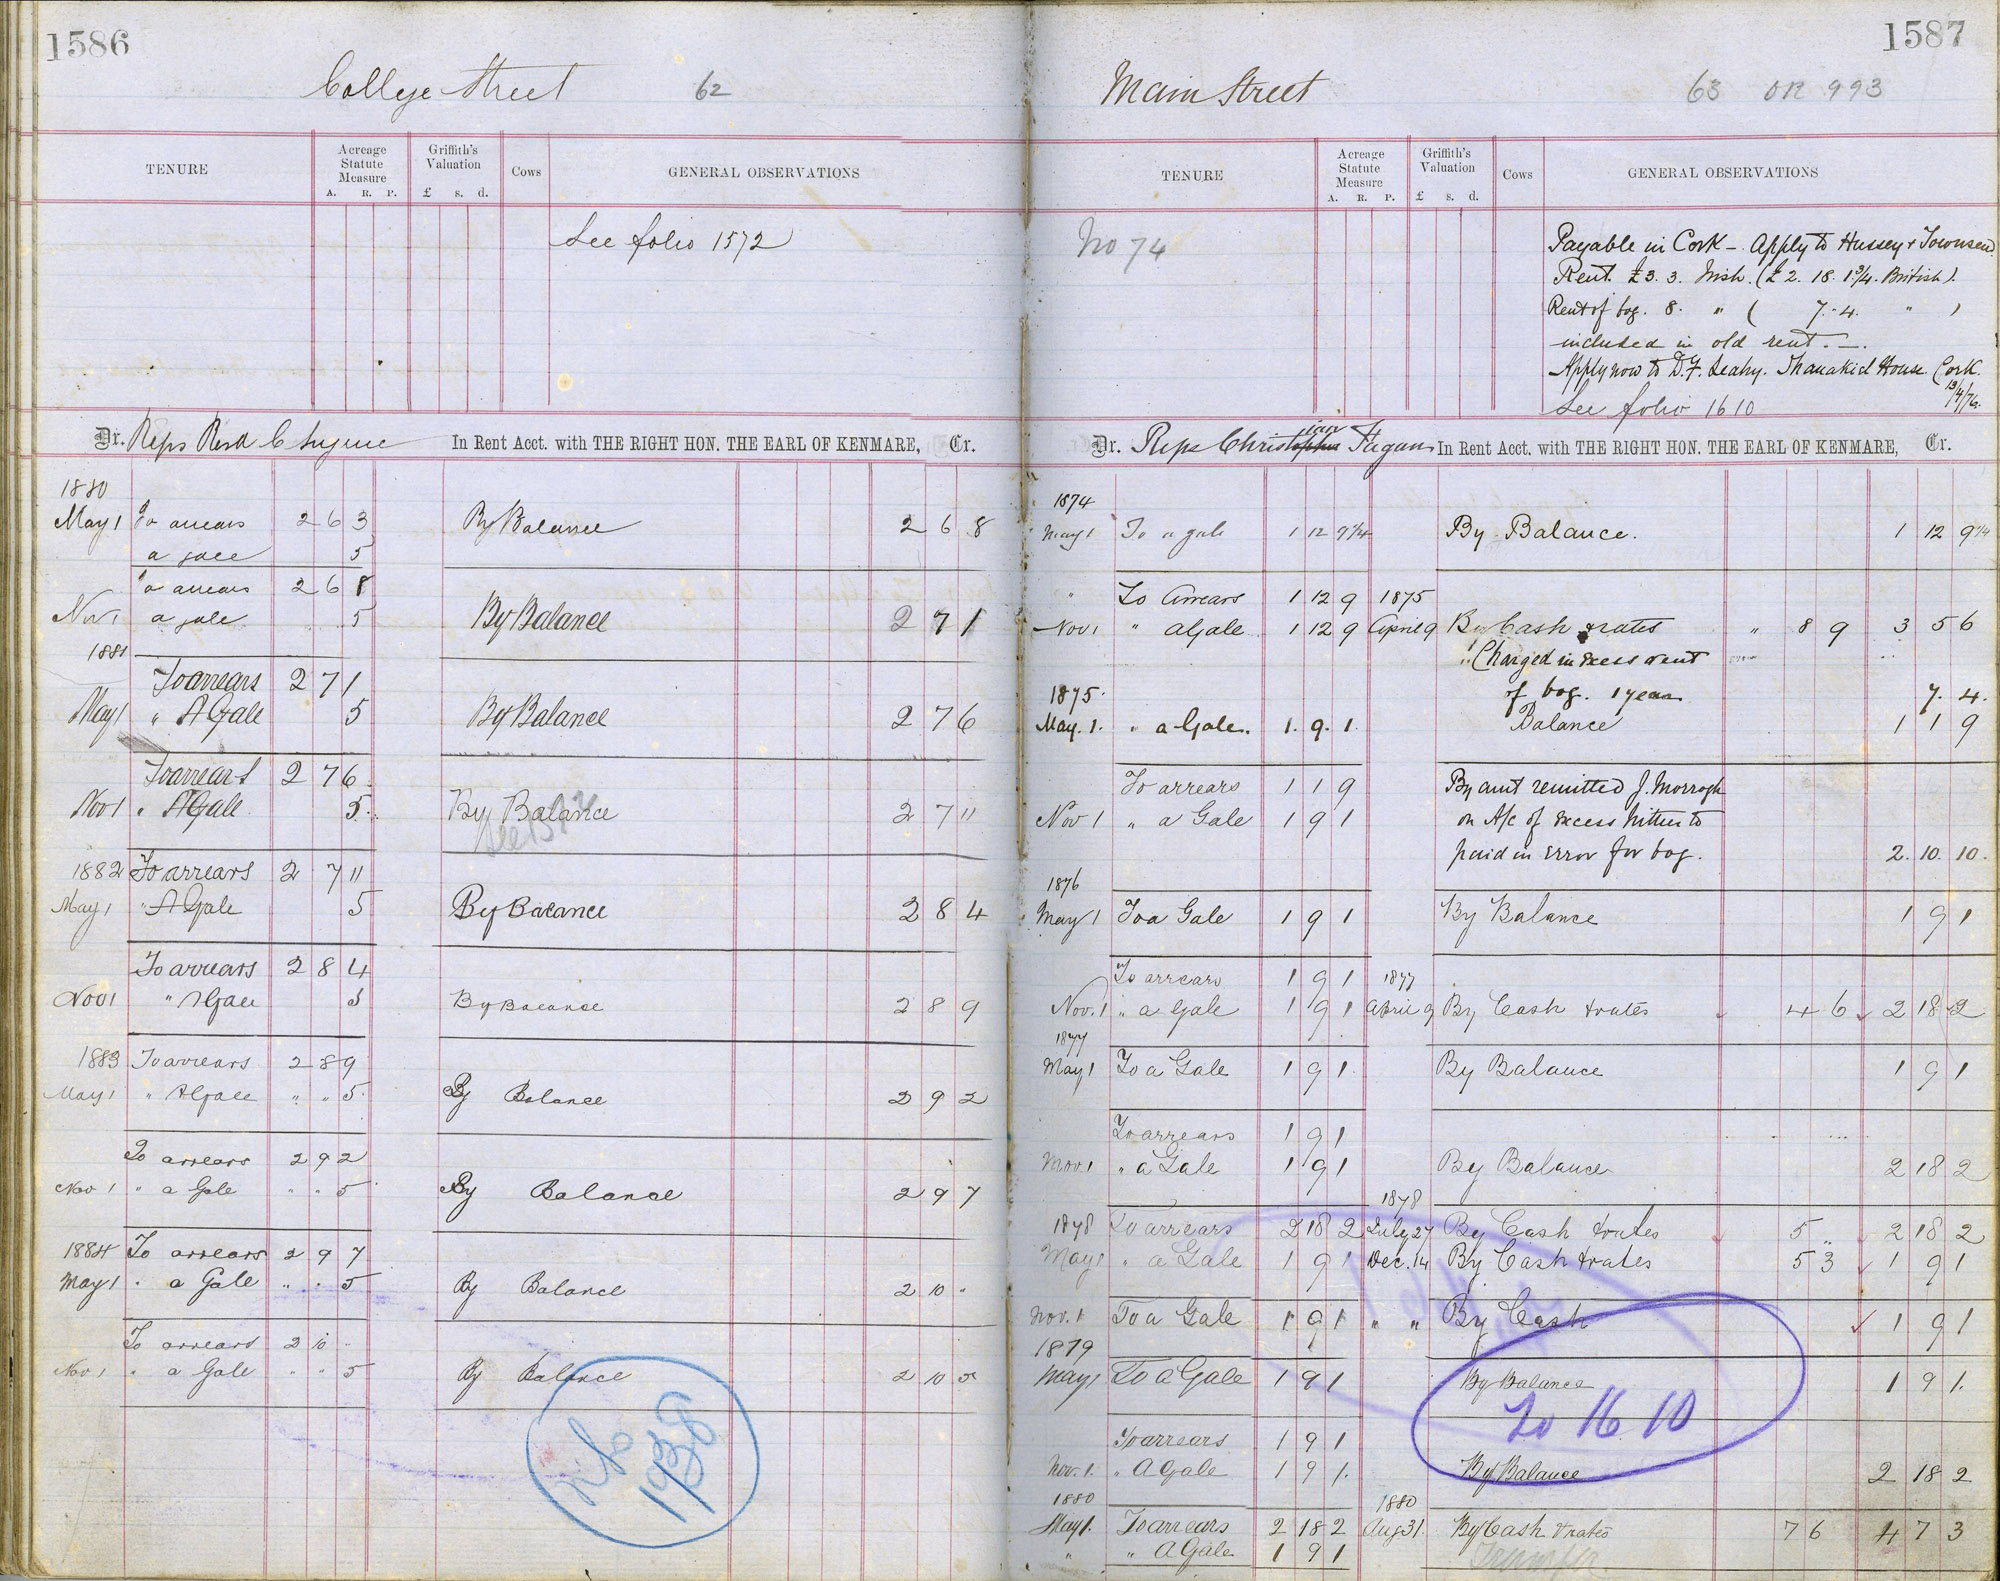 1586
College Street 62
TENURE
Acreage Statute Measure
A. R. P.
Griffith's Valuation
£ s. d.
Cows
GENERAL OBSERVATIONS
See folio 1572
Dr. Reps Rerd C In Rent Acct. with THE RIGHT HON. THE EARL OF KENMARE, Cr.
1880
May 1 To arrears 2 6 3 By Balance 2 6 8
a gale 5
To arrears 2 6 8
Nov 1 a gale 5 By Balance 2 7 1
1881
To arrears 2 7 1
May 1 " A Gale 5 By Balance 2 7 6
To arrears 2 7 6
Nov 1 " A Gale 5 By Balance 2 7 11
1882 To arrears 2 7 11
May 1 " A Gale 5 By Balance 2 8 4
To arrears 2 8 4
Nov 1 " A Gale 5 By Balance 2 8 9
1883 To arrears 2 8 9
May 1 " A Gale " " 5 By Balance 2 9 2
To arrears 2 9 2
Nov 1 " a Gale " " 5 By Balance 2 9 7
1884 To arrears 2 9 7
May 1 " a Gale " " 5 By Balance 2 10 "
To arrears 2 10 "
Nov 1 " a Gale " " 5 By Balance 2 10 5
1938
1587
Main Street 63 OR 993
TENURE
Acreage Statute Measure
A. R. P.
Griffith's Valuation
£ s. d.
Cows
GENERAL OBSERVATIONS
No 74
Payable in Cork - Apply to Hussey & Townsend.
Rent £3. 3. Irish. (£2. 18. 1 3/4. British).
Rent of bog. 8. " ( 7. 4. " )
included in old rent. —.
Apply now to D. F. Leahy. Shanakiel House Cork.
13/4/76.
See folio 1610
Dr. Reps Christian Fagan In Rent Acct. with THE RIGHT HON. THE EARL OF KENMARE, Cr.
1874
May 1 To a gale 1 12 9 1/4 By Balance. 1 12 9 1/4
" To Arrears 1 12 9 1875
Nov 1 " a Gale 1 12 9 April 9 By Cash & rates " 8 9 3 5 6
" Charged in excess rent
1875. of bog. 1 year 7. 4.
May. 1. " a Gale. 1. 9. 1. Balance 1 1 9
To arrears 1 1 9 By amt remitted J. Morrogh
Nov 1 " a Gale 1 9 1 on A/c of excess hitherto
paid in error for bog. 2. 10. 10.
1876
May 1 To a Gale 1 9 1 By Balance 1 9 1
To arrears 1 9 1 1877
Nov. 1 " a Gale 1 9 1 April 9 By Cash & rates 4 6 2 18 2
1877
May 1 To a Gale 1 9 1 By Balance 1 9 1
To arrears 1 9 1
Nov. 1 " a Gale 1 9 1 By Balance 2 18 2
1878
1878 To arrears 2 18 2 July 27 By Cash & rates 5 " 2 18 2
May 1 " a Gale 1 9 1 Dec. 14 By Cash & rates 5 3 1 9 1
Nov. 1 To a Gale 1 9 1 " " By Cash 1 9 1
1879
May 1 To a Gale 1 9 1 By Balance 1 9 1.
To 1610
To arrears 1 9 1
Nov. 1. " A Gale 1 9 1. By Balance 2 18 2
1880 1880
May 1. To arrears 2 18 2 Aug 31 By Cash & rates 7 6 4 7 3
" " A Gale 1 9 1